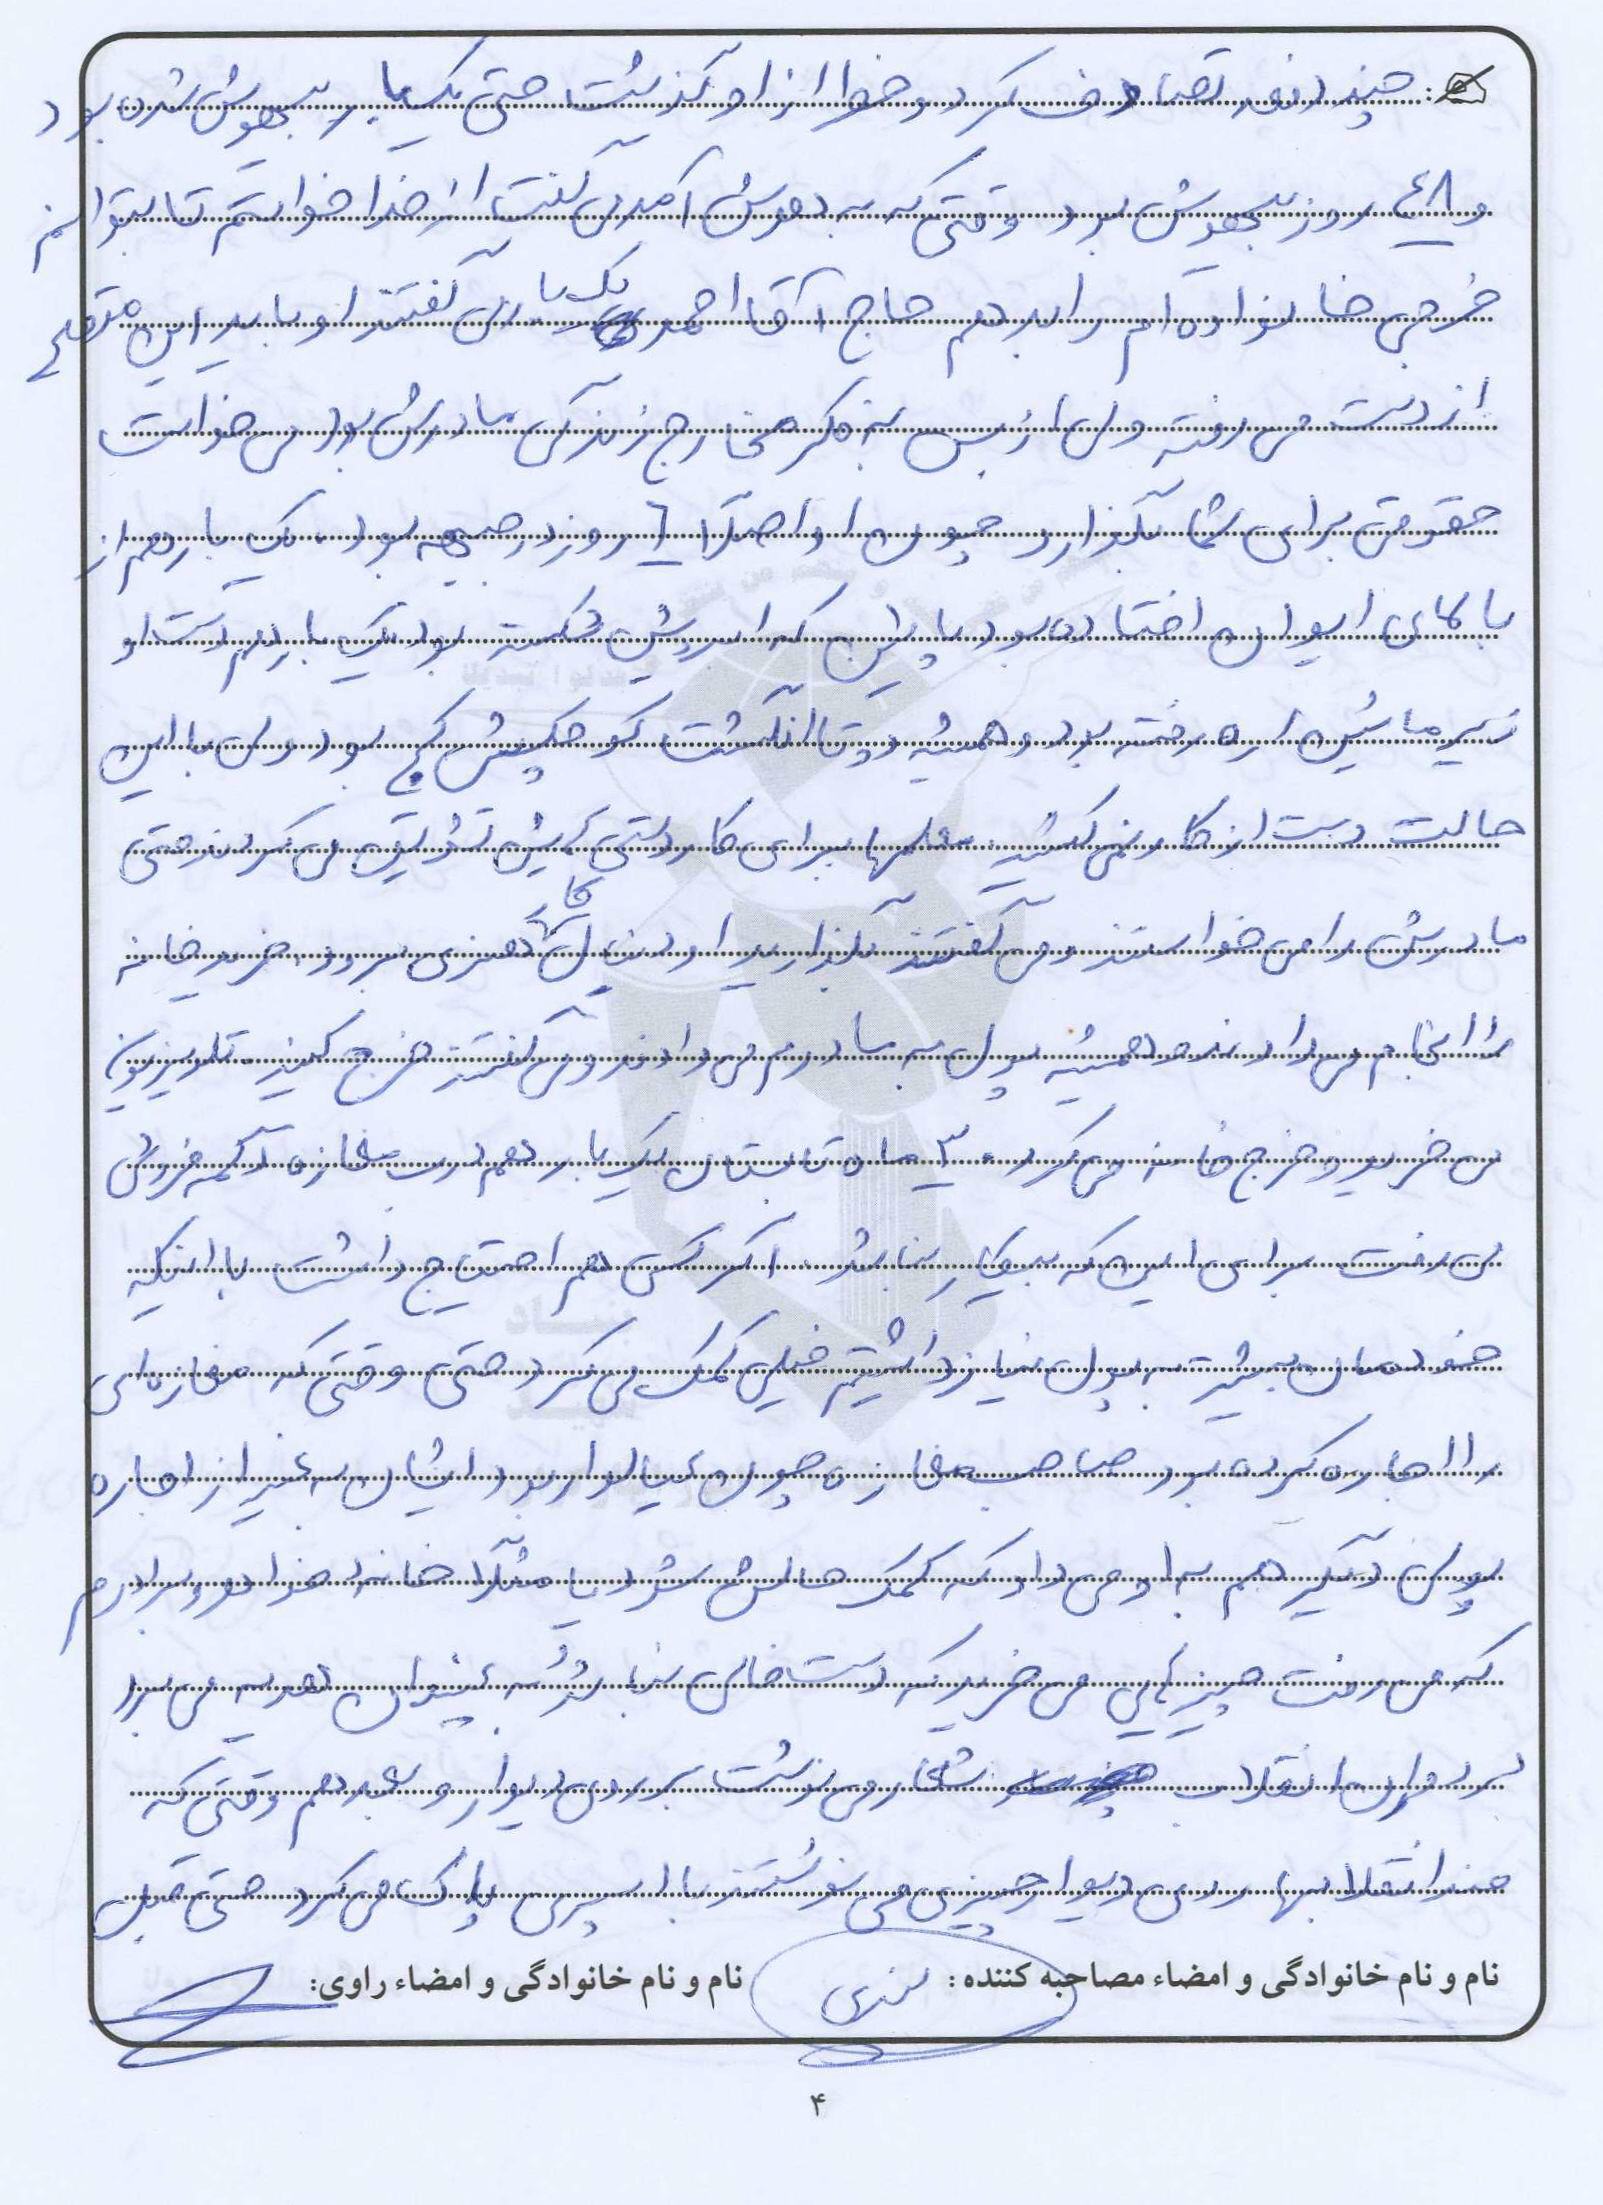 چند دفعه تصادف کرد و خطر از او گذشت حتی یک بار بیهوش شده بود
و ۴۸ روز بیهوش بود وقتی که به هوش آمدن گفت از خدا خواستم تا بتوانم
خرجی خانواده ام را بدهم حاج آقا احمدی یک باری گفتند او باید این موقع
از دست می رفته ولی از بس به فکر مخارج زندگی مادرش بود می خواست
حقوقی برای شما بگذارد چون او اصلاً ۶ روز در جبهه بود. یک بار هم از
بالای ایوان افتاده بود پایین که ابرویش شکسته بود یک بار هم دست او
زیر ماشین اره رفته بود و همیشه دو تا انگشت کوچکش کج بود ولی با این
حالت دست از کار نمی کشید. معلمها برای کاردستی هایش تشویق می کردند حتی
مادرش را می خواستند و می گفتند بگذارید او دنبال کار هنری برود. خرید خانه
را انجام می دادند و همیشه پول به مادرم می دادند و می گفتند خرج کنید. تلویزیون
می خرید و خرج خانه می کرد. ۳ ماه تابستان یک بار هم درب مغازه دکمه فروشی
می رفت برای این که بیکار نباشد. اگر کسی هم احتیاج داشت با اینکه
خودمان بیشتر به پول نیاز داشتیم خیلی کمک می کرد حتی وقتی که مغازه ای
را اجاره کرده بود صاحب مغازه چون عیالوار بود ایشان به غیر از اجاره
پولی دیگر هم به او می داد که کمک حالش شود یا مثلاً خانه خواهر و برادرم
که می رفت چیزهایی می خرید که دست خالی نباشد به عنوان هدیه می برد
در دوران انقلاب شعار می نوشت بر روی دیوار و بعد هم وقتی که
ضد انقلابها روی دیوار چیزی می نوشتند با اسپری پاک می کرد حتی قبل
نام و نام خانوادگی و امضاء مصاحبه کننده: نام و نام خانوادگی و امضاء راوی:
۴